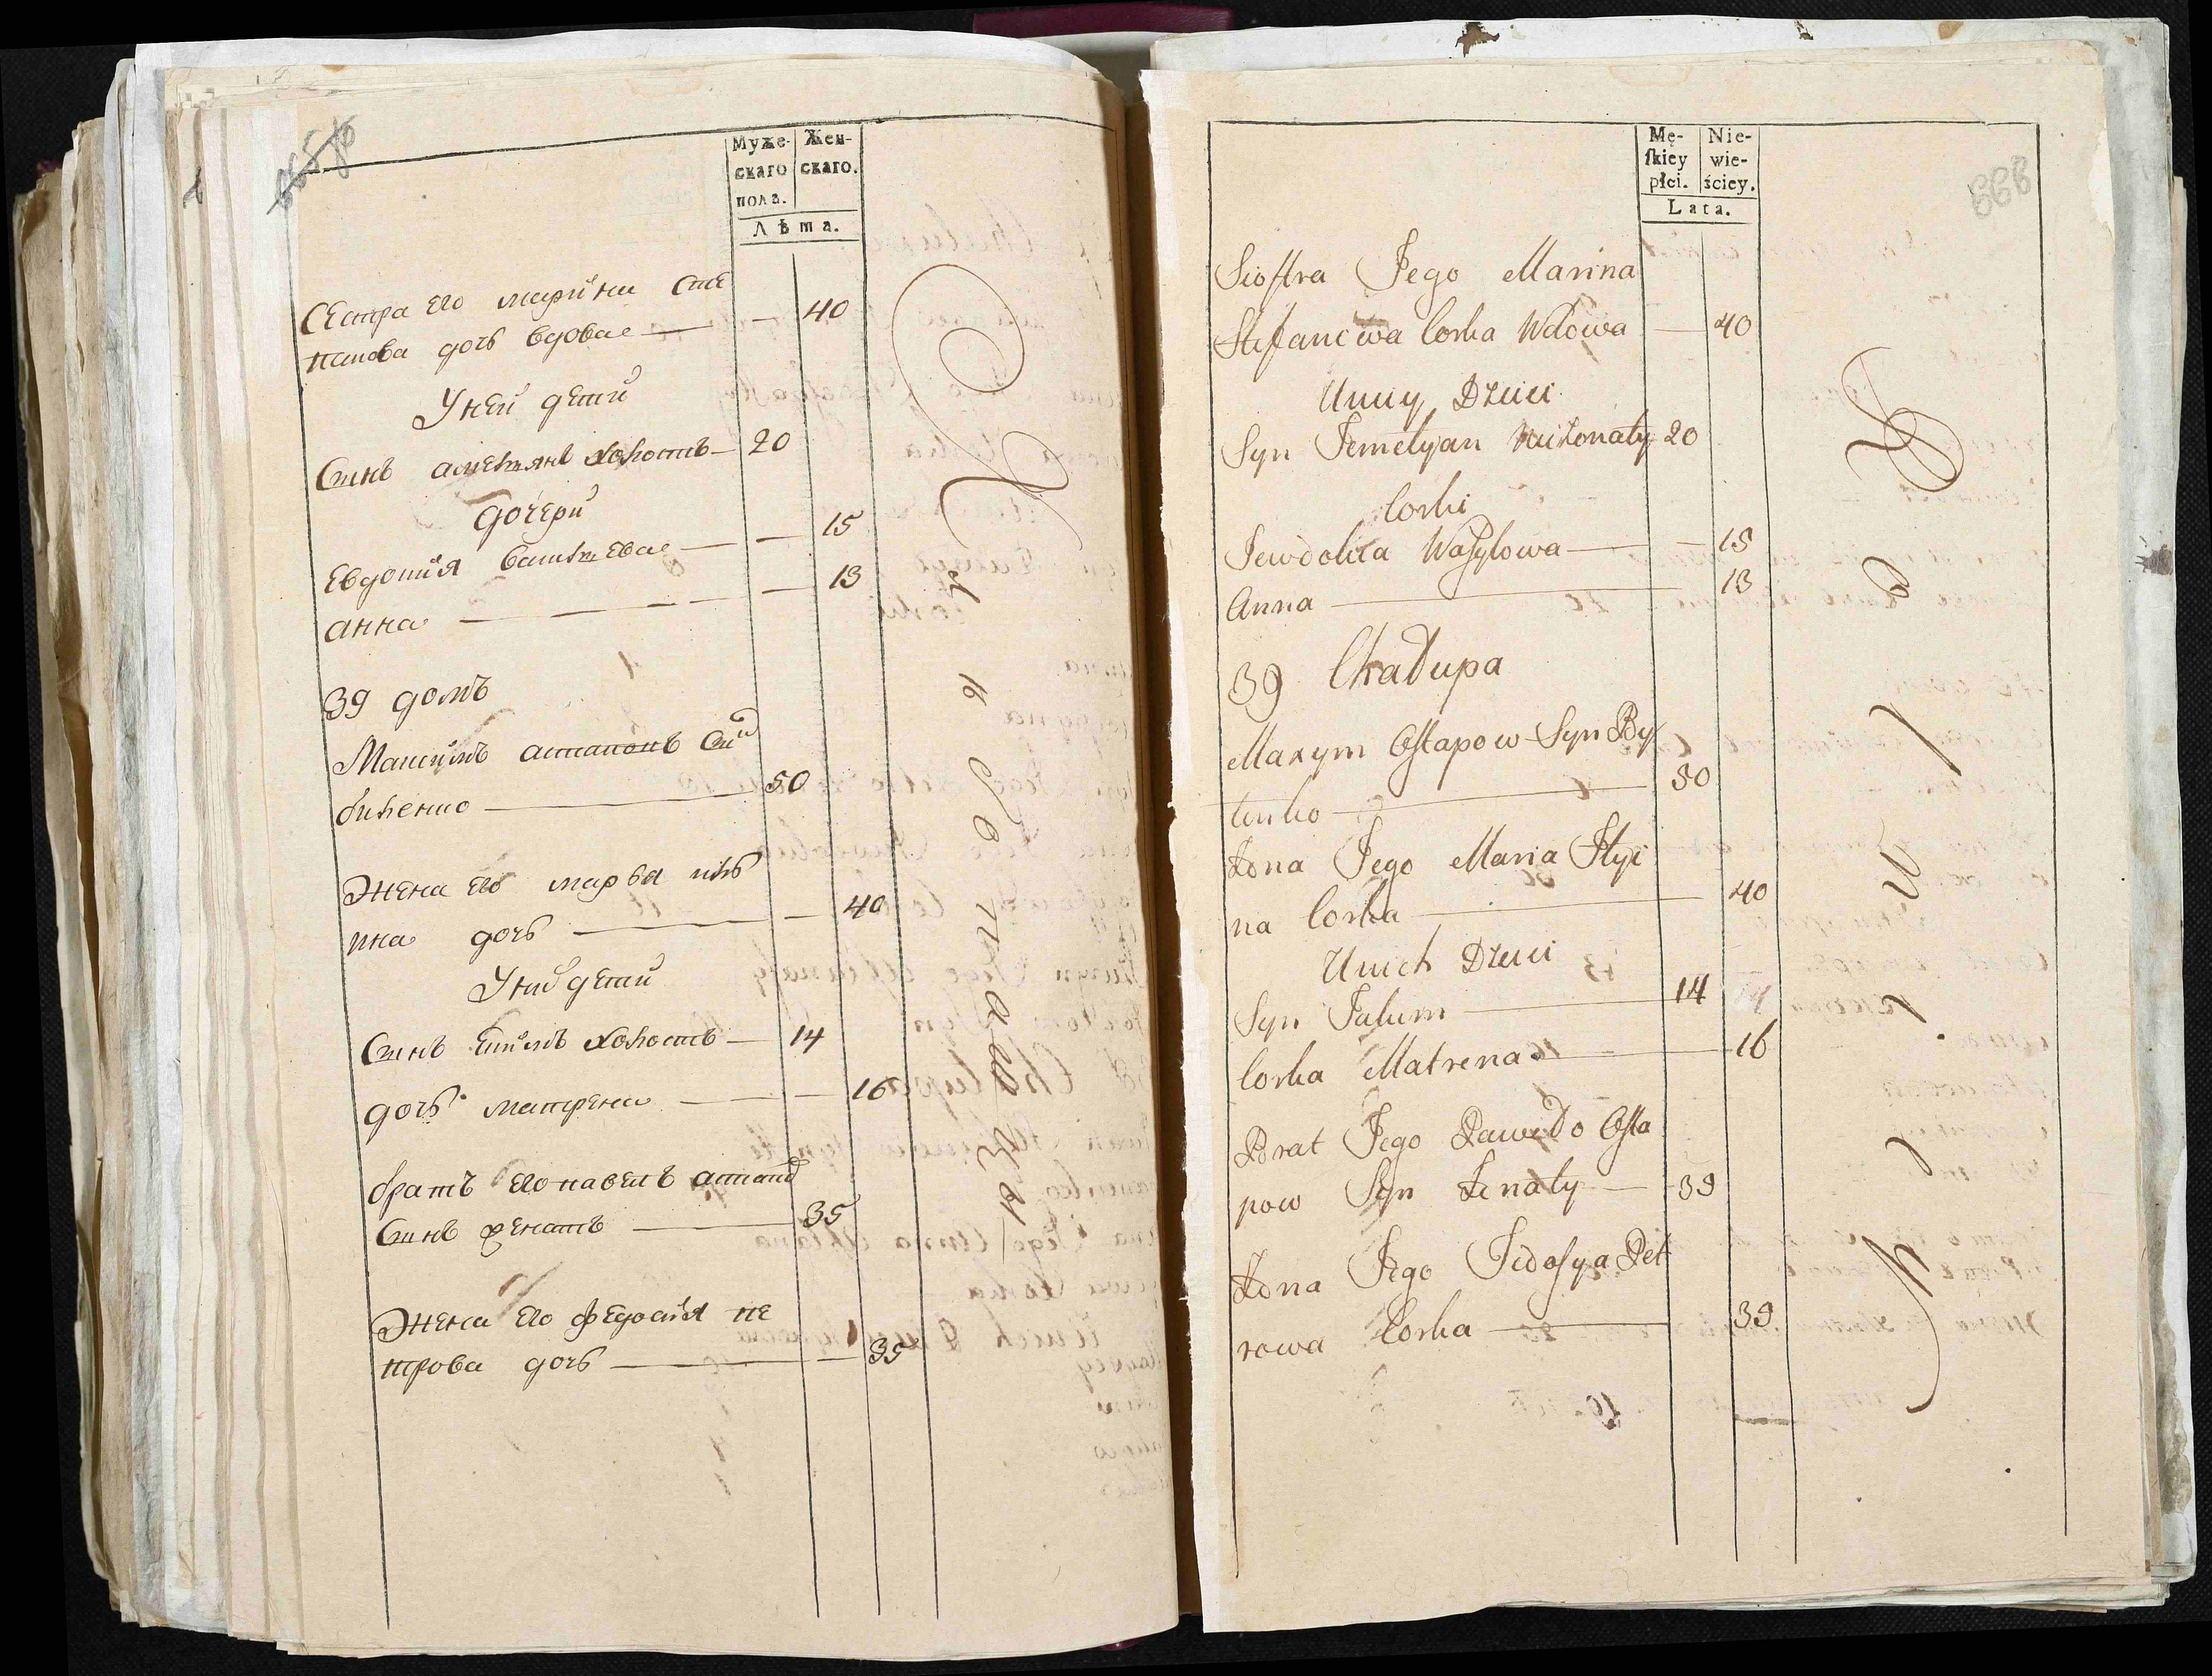 Муже-
скаго
пола.
Жен-
скаго.
Лѣта.
Сестра его марина сте
панова дочь вдова — — 40
У ней дети
Синъ амельянъ холостъ — 20
дочери
Евдокия васильева — — 15
анна — — — 13
39 домъ
Максимъ астаповъ Син
биченко — 50
Жена его марья иль
ина дочь — — 40
У них дети
Синъ Екимъ холостъ — 14
дочь матрена — — 16
братъ его павелъ астапов
Синъ женатъ — 39
Жена его федосия пе
трова дочь — — 39
Mę-
skiey
płci.
Nie-
wie-
ściey.
Lata.
Siostra Jego Marina
Stefanowa Corka Wdowa — 40
U niey Dzieci
Syn Jemelyan Nieżonaty 20
Corki
Jewdokia Wasylowa — — 15
Anna — 13
39 Chałupa
Maxym Ostapow Syn By
czenko — 50
Żona Jego Maria Ilyi
na Corka — 40
U nich Dzieci
Syn Jakim — 14
Corka Matrena — 16
Brat Jego Pawło Osta
pow Syn Żonaty — 39
Żona Jego Fedosya Pet
rowa Corka — 39